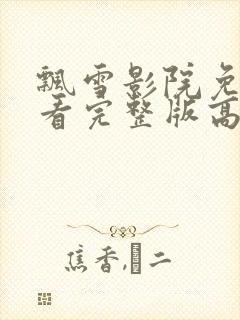 飘雪影院免
看完整版高
焦香,二